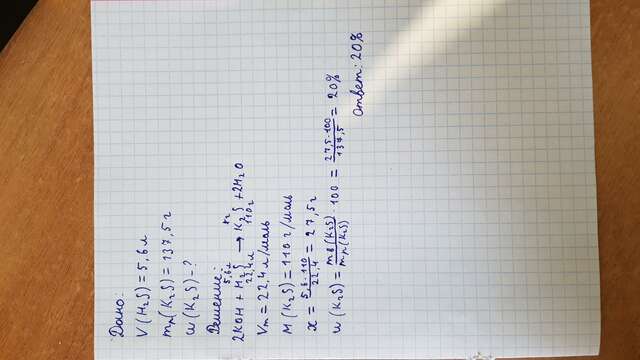 Дано:
V(H₂S) = 5,6 л
mр(K₂S) = 137,5 г
ω(K₂S) - ?
Решение:
5,6л xг
2KOH + H₂S → K₂S + 2H₂O
22,4л 110г
Vm = 22,4 л/моль
M(K₂S) = 110 г/моль
x = 5,6·110/22,4 = 27,5 г
ω(K₂S) = mв(K₂S)/mр(K₂S) · 100 = 27,5·100/137,5 = 20%
Ответ: 20%